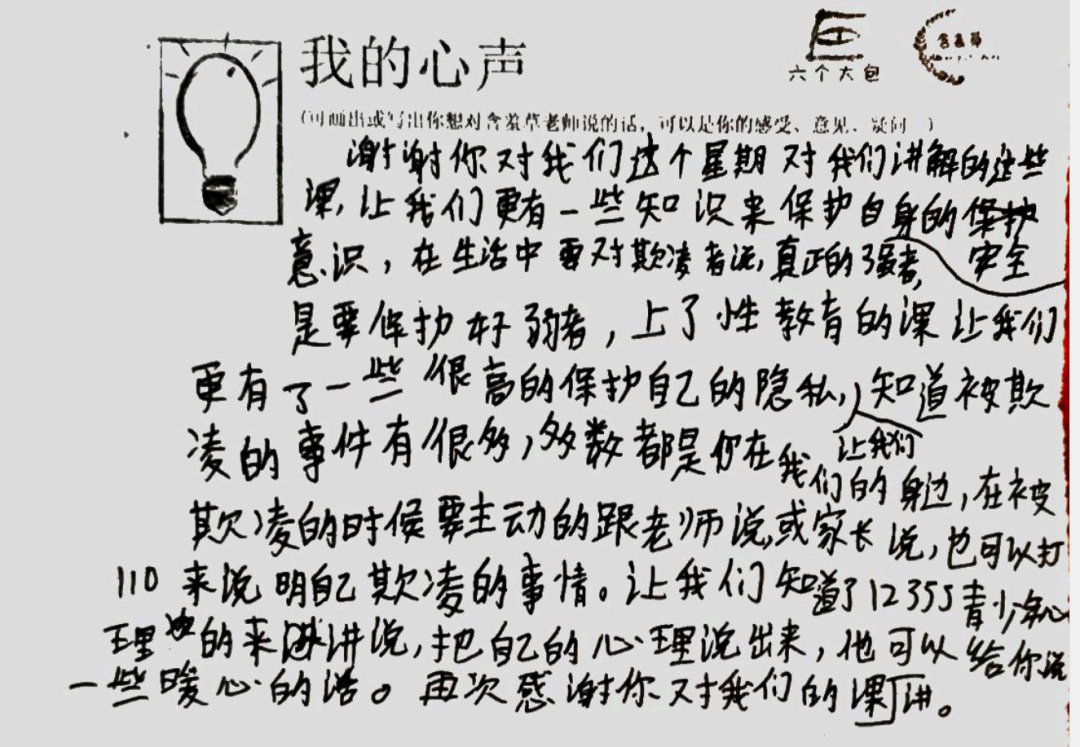 我的心声
六个大包
含羞草
(可画出或写出你想对含羞草老师说的话,可以是你的感受、意见、疑问 )
谢谢你对我们这个星期对我们讲解的这些
课,让我们更有一些知识来保护自身的安全
意识,在生活中要对欺凌者说,真正的强者,
是要保护好弱者,上了性教育的课让我们
更有了一些很高的保护自己的隐私,让我们知道被欺
凌的事件有很多,多数都是你在我们的身边,在被
欺凌的时候要主动的跟老师说,或家长说,也可以打
110 来说明自己欺凌的事情。让我们知道了12355青少年心
理 的来讲说,把自己的心理说出来,他可以给你说
一些暖心的话。再次感谢你对我们的课讲。